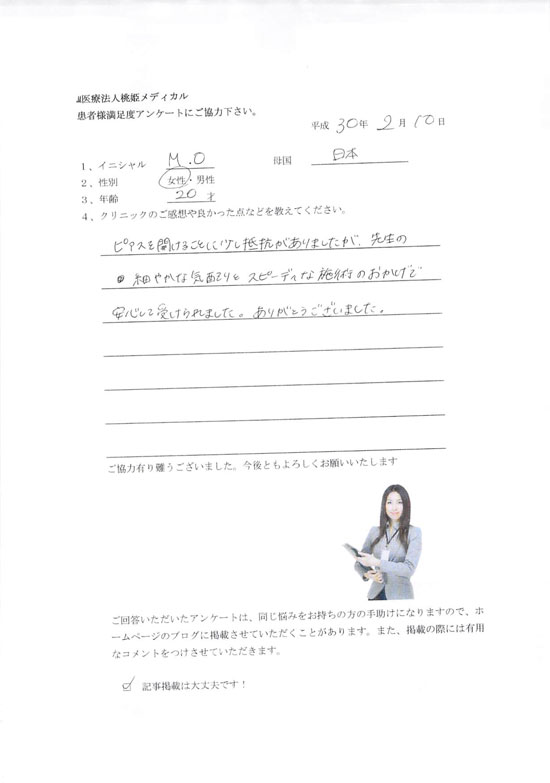 医療法人桃姫メディカル
患者様満足度アンケートにご協力下さい。
平成 30年 2月 10日
1、イニシャル M.O 母国 日本
2、性別 女性・男性
3、年齢 20才
4、クリニックのご感想や良かった点などを教えてください。
ピアスを開けることに少し抵抗がありましたが、先生の
細やかな気配りと スピーディな施術のおかげで
安心して受けられました。ありがとうございました。
ご協力有り難うございました。今後ともよろしくお願いいたします
ご回答いただいたアンケートは、同じ悩みをお持ちの方の手助けになりますので、ホ
ームページのブログに掲載させていただくことがあります。また、掲載の際には有用
なコメントをつけさせていただきます。
☑ 記事掲載は大丈夫です！